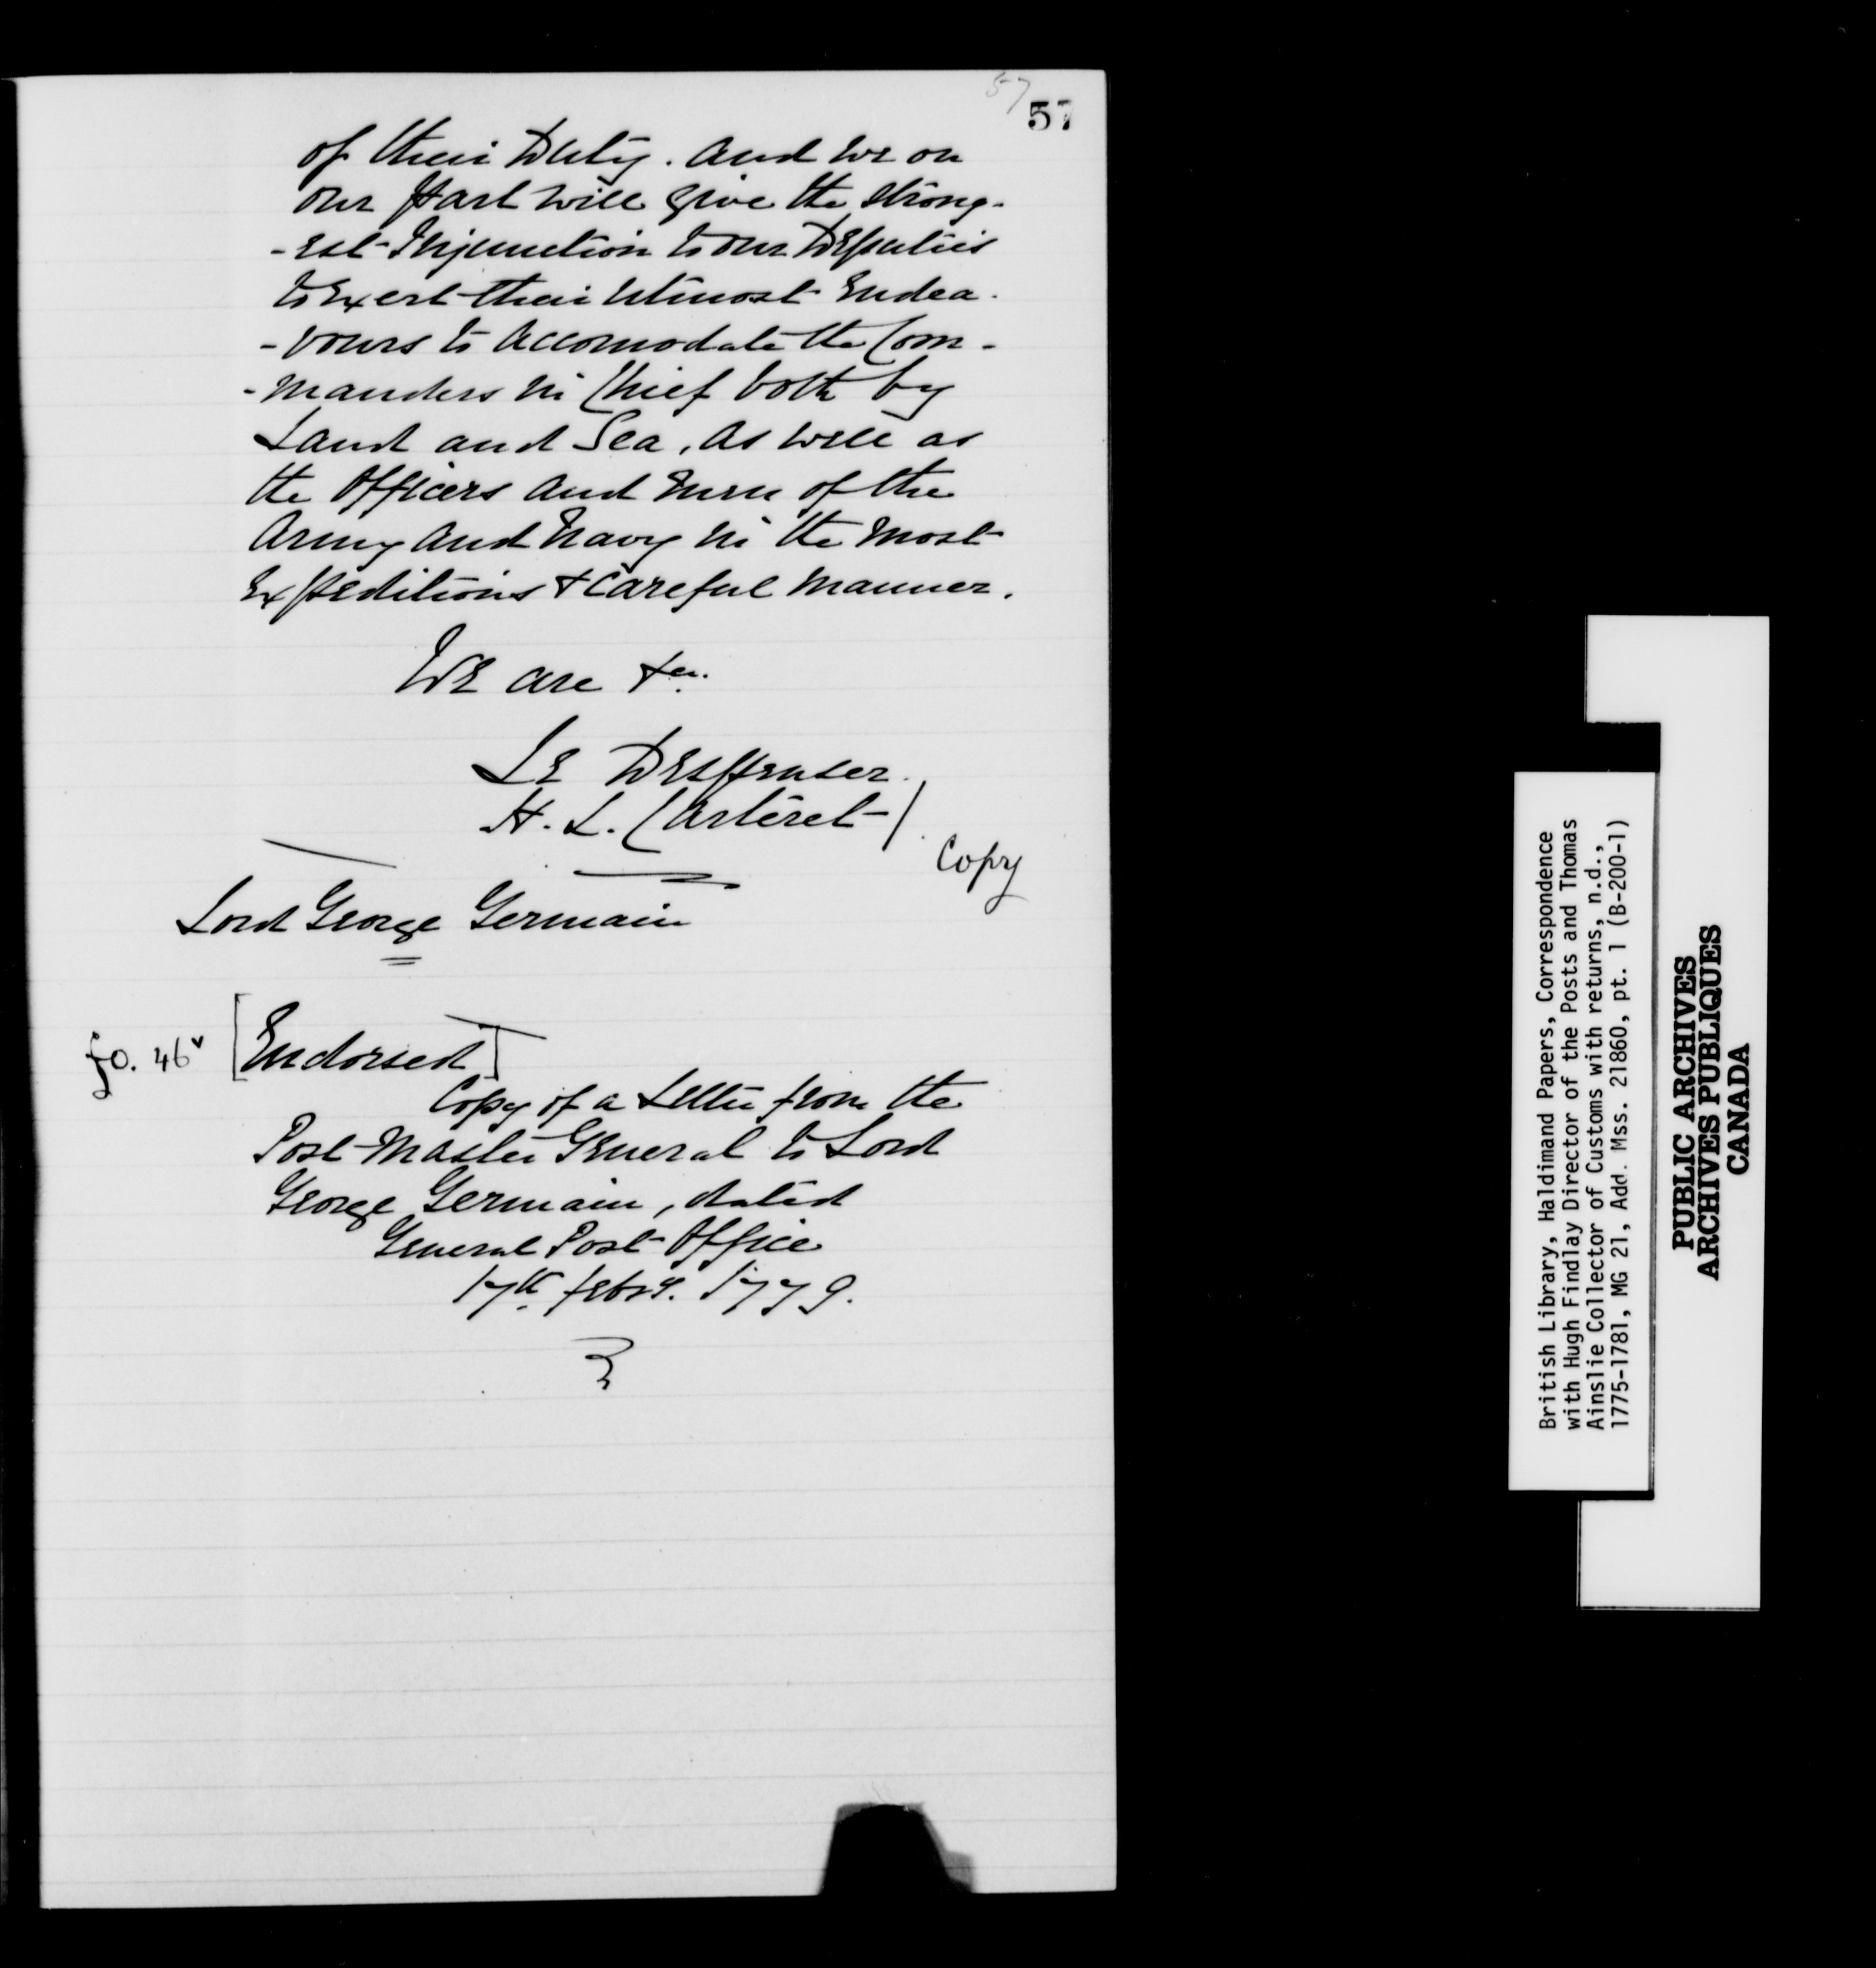 57
57
of their Duty. And we on
our Part will give the strong-
-est Injunction to our Deputies
to Exert their Utmost Endea-
-vours to Accomodate the Com-
-manders in Chief both by
Land and Sea, As well as
the Officers and Men of the
Army and Navy in the Most
Expeditious & Careful Manner.
We are &ca.
Le Despenser.
H. L. Carteret
Copy
Lord George Germain
fo. 46v [Endorsed]
Copy of a Letter from the
Post Master General to Lord
George Germain, dated
General Post Office
17th febry. 1779.
British Library, Haldimand Papers, Correspondence
with Hugh Findlay Director of the Posts and Thomas
Ainslie Collector of Customs with returns, n.d.,
1775-1781, MG 21, Add. Mss. 21860, pt. 1 (B-200-1)
PUBLIC ARCHIVES
ARCHIVES PUBLIQUES
CANADA